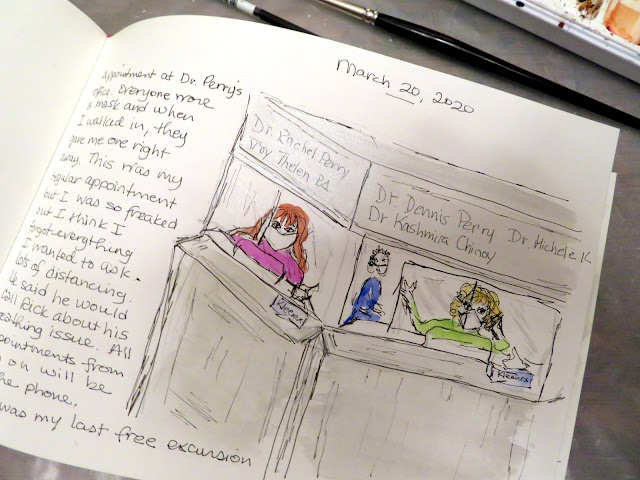 March 20, 2020
Appointment at Dr. Perry's
office. Everyone wore
a mask and when
I walked in, they
gave me one right
away. This was my
regular appointment
but I was so freaked
out I think I
forgot everything
I wanted to ask.
Lots of distancing.
He said he would
call Rick about his
issue. All
appointments from
on will be
the phone.
was my last free excursion
Dr. Rachel Perry
Troy Thelen PA
Dr. Dennis Perry Dr. Michele K
Dr Kashmira Chinoy
Kleenex
Kleenex